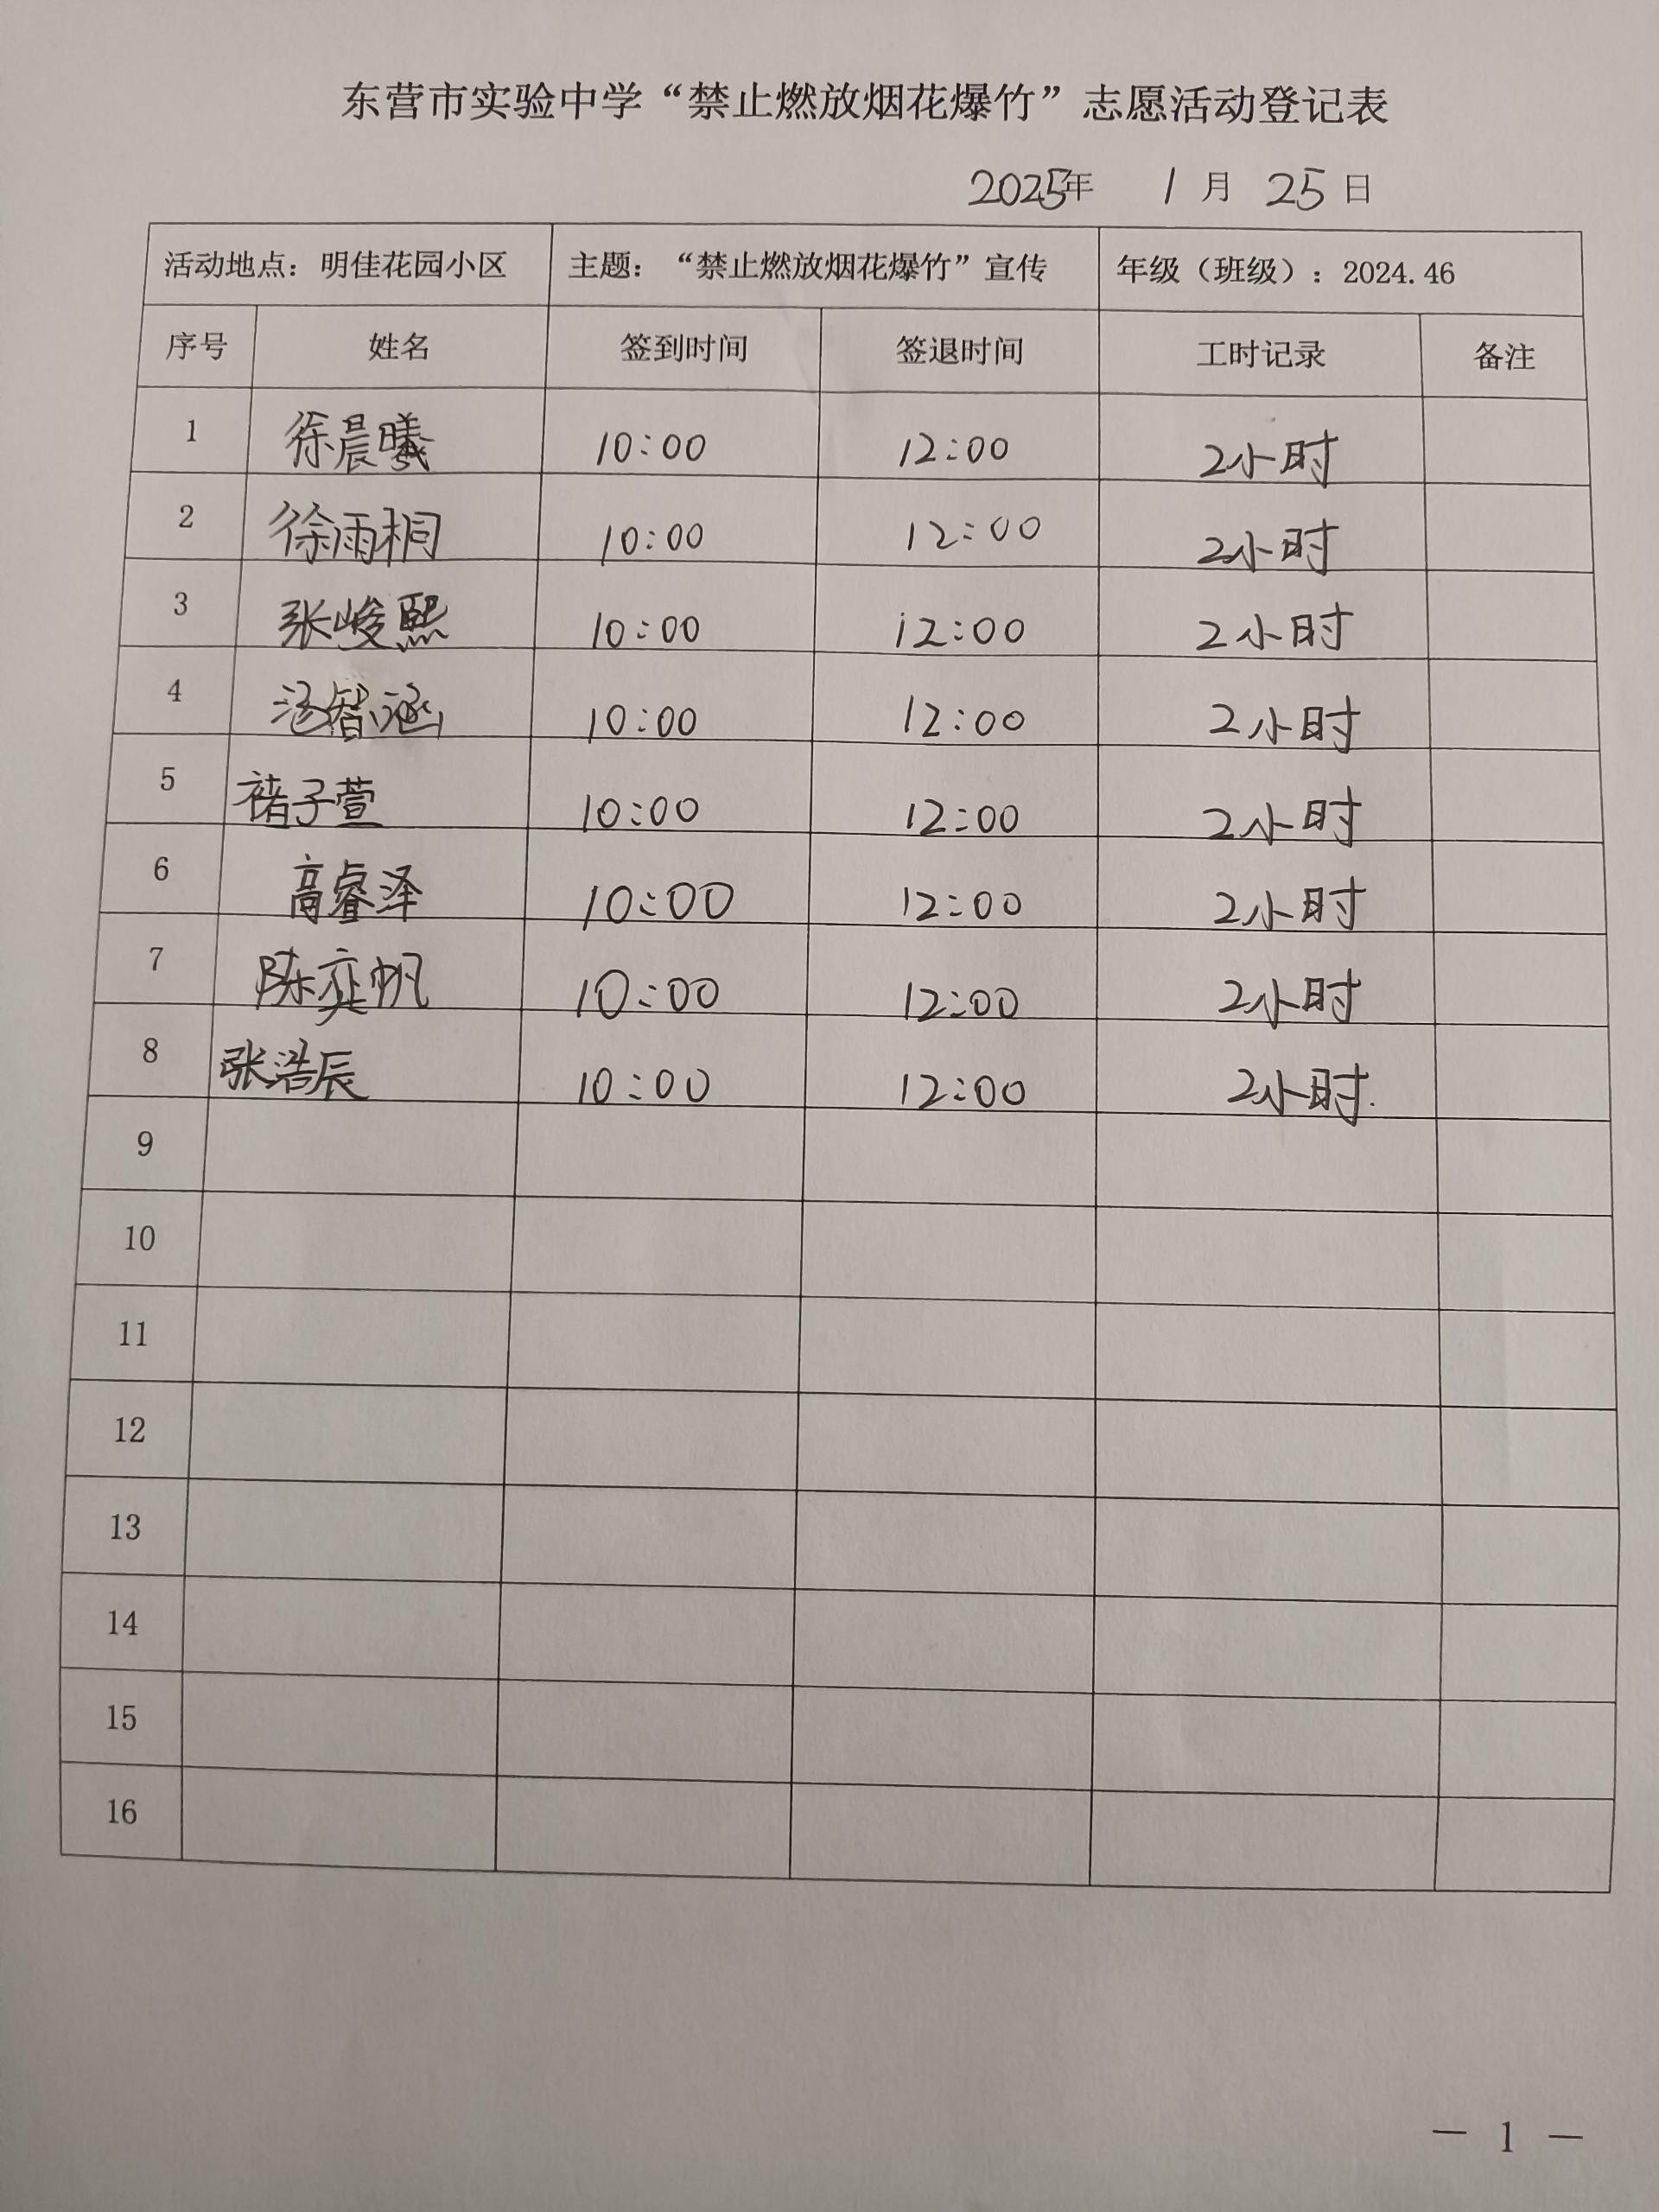 东营市实验中学“禁止燃放烟花爆竹”志愿活动登记表
2025年 1月 25日
活动地点：明佳花园小区 主题：“禁止燃放烟花爆竹”宣传 年级（班级）：2024.46
序号 姓名 签到时间 签退时间 工时记录 备注
1 徐晨曦 10:00 12:00 2小时
2 徐雨桐 10:00 12:00 2小时
3 张峻熙 10:00 12:00 2小时
4 智涵 10:00 12:00 2小时
5 褚子萱 10:00 12:00 2小时
6 高睿泽 10:00 12:00 2小时
7 陈奕帆 10:00 12:00 2小时
8 张浩辰 10:00 12:00 2小时.
9
10
11
12
13
14
15
16
— 1 —